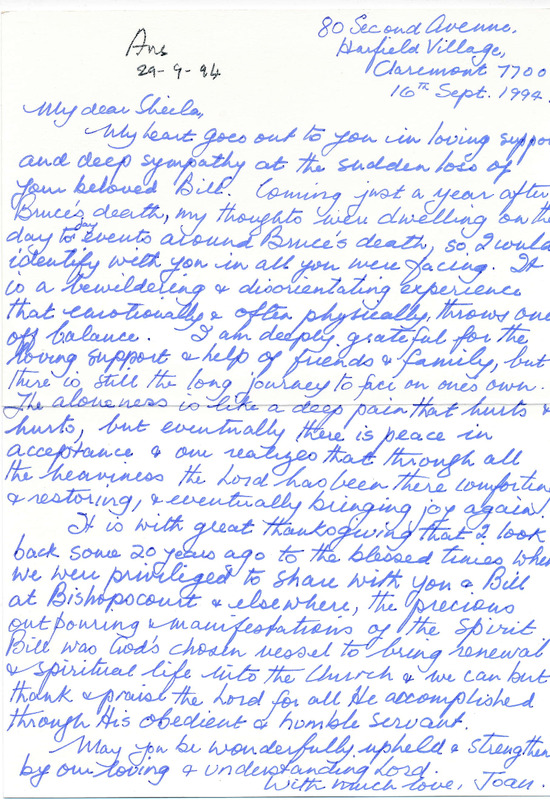 80 Second Avenue,
Harfield Village,
Claremont 7700
16th Sept. 1994.
Ans
29-9-94
My dear Sheila,
My heart goes out to you in loving suppor
and deep sympathy at the sudden loss of
your beloved Bill. Coming just a year after
Bruce's death, my thoughts were dwelling on the
day to day events around Bruce's death, so I would
identify with you in all you were facing. It
is a bewildering & disorientating experience
that emotionally & often physically, throws one
off balance. I am deeply grateful for the
loving support & help of friends & family, but
there is still the long journey to face on one's own.
The aloneness is like a deep pain that hurts &
hurts, but eventually there is peace in
acceptance & one realizes that through all
the heaviness the Lord has been there comfortin
& restoring, & eventually bringing joy again.
It is with great thanksgiving that I look
back some 20 years ago to the blessed times when
we were privileged to share with you & Bill
at Bishopscourt & elsewhere, the precious
outpouring & manifestations of the Spirit
Bill was God's chosen vessel to bring renewal
& spiritual life into the Church & we can but
thank & praise the Lord for all He accomplished
through His obedient & humble servant.
May you be wonderfully upheld & strengthen
by our loving & understanding Lord.
With much love, Joan.